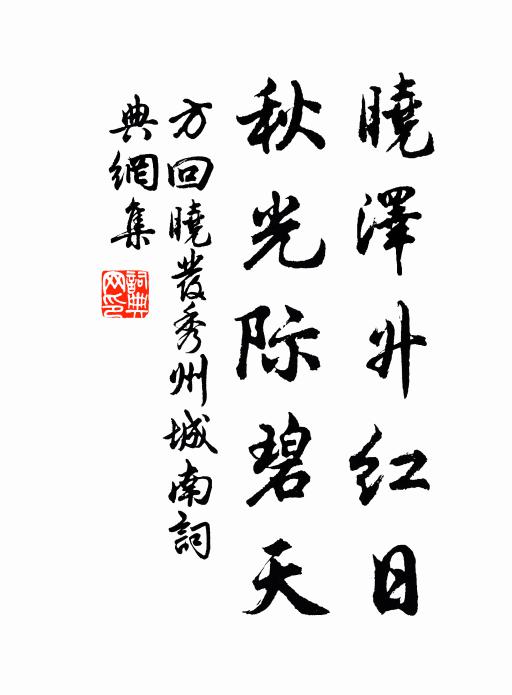 曉澤升紅日
秋光际碧天
方回曉發秀州城南詞
典網集
詞典網印